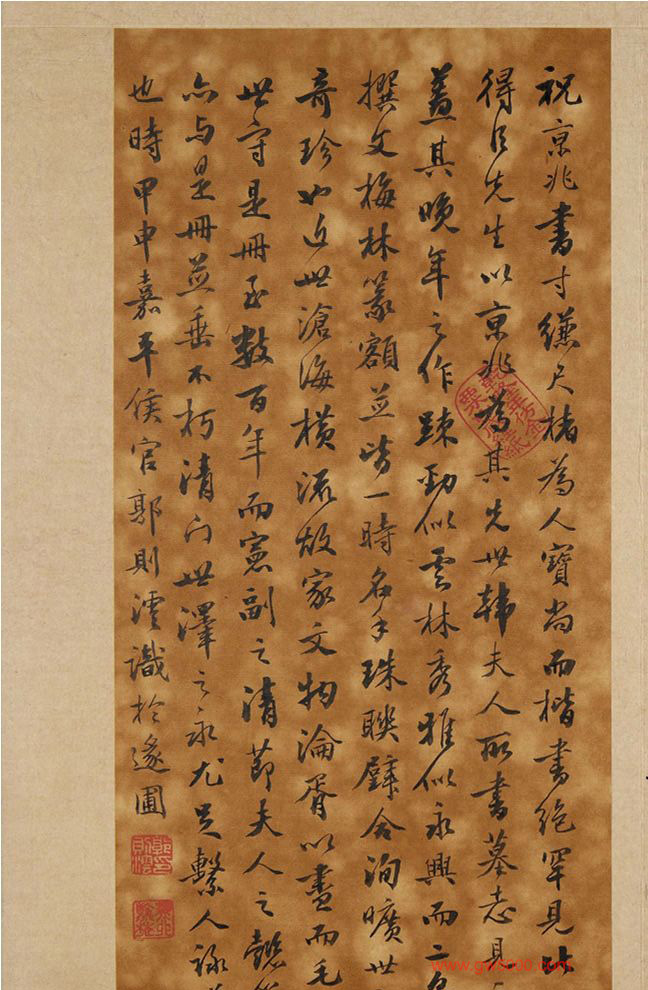 祝京兆書寸縑尺楮為人寶尚而楷書絶罕見
得臣先生以京兆為其先世韓夫人所書墓志見
蓋其晚年之作踈勁似雲林秀雅似永興而二
撰文梅林篆額並皆一時名手珠聯璧合洵曠世
奇珍也近世滄海橫流故家文物淪胥以盡而毛
世守是冊至數百年而憲副之清節夫人之懿
亦与是冊並垂不朽清門世澤之永尤足繫人
也時甲申嘉平侯官郭則澐識於邃圃